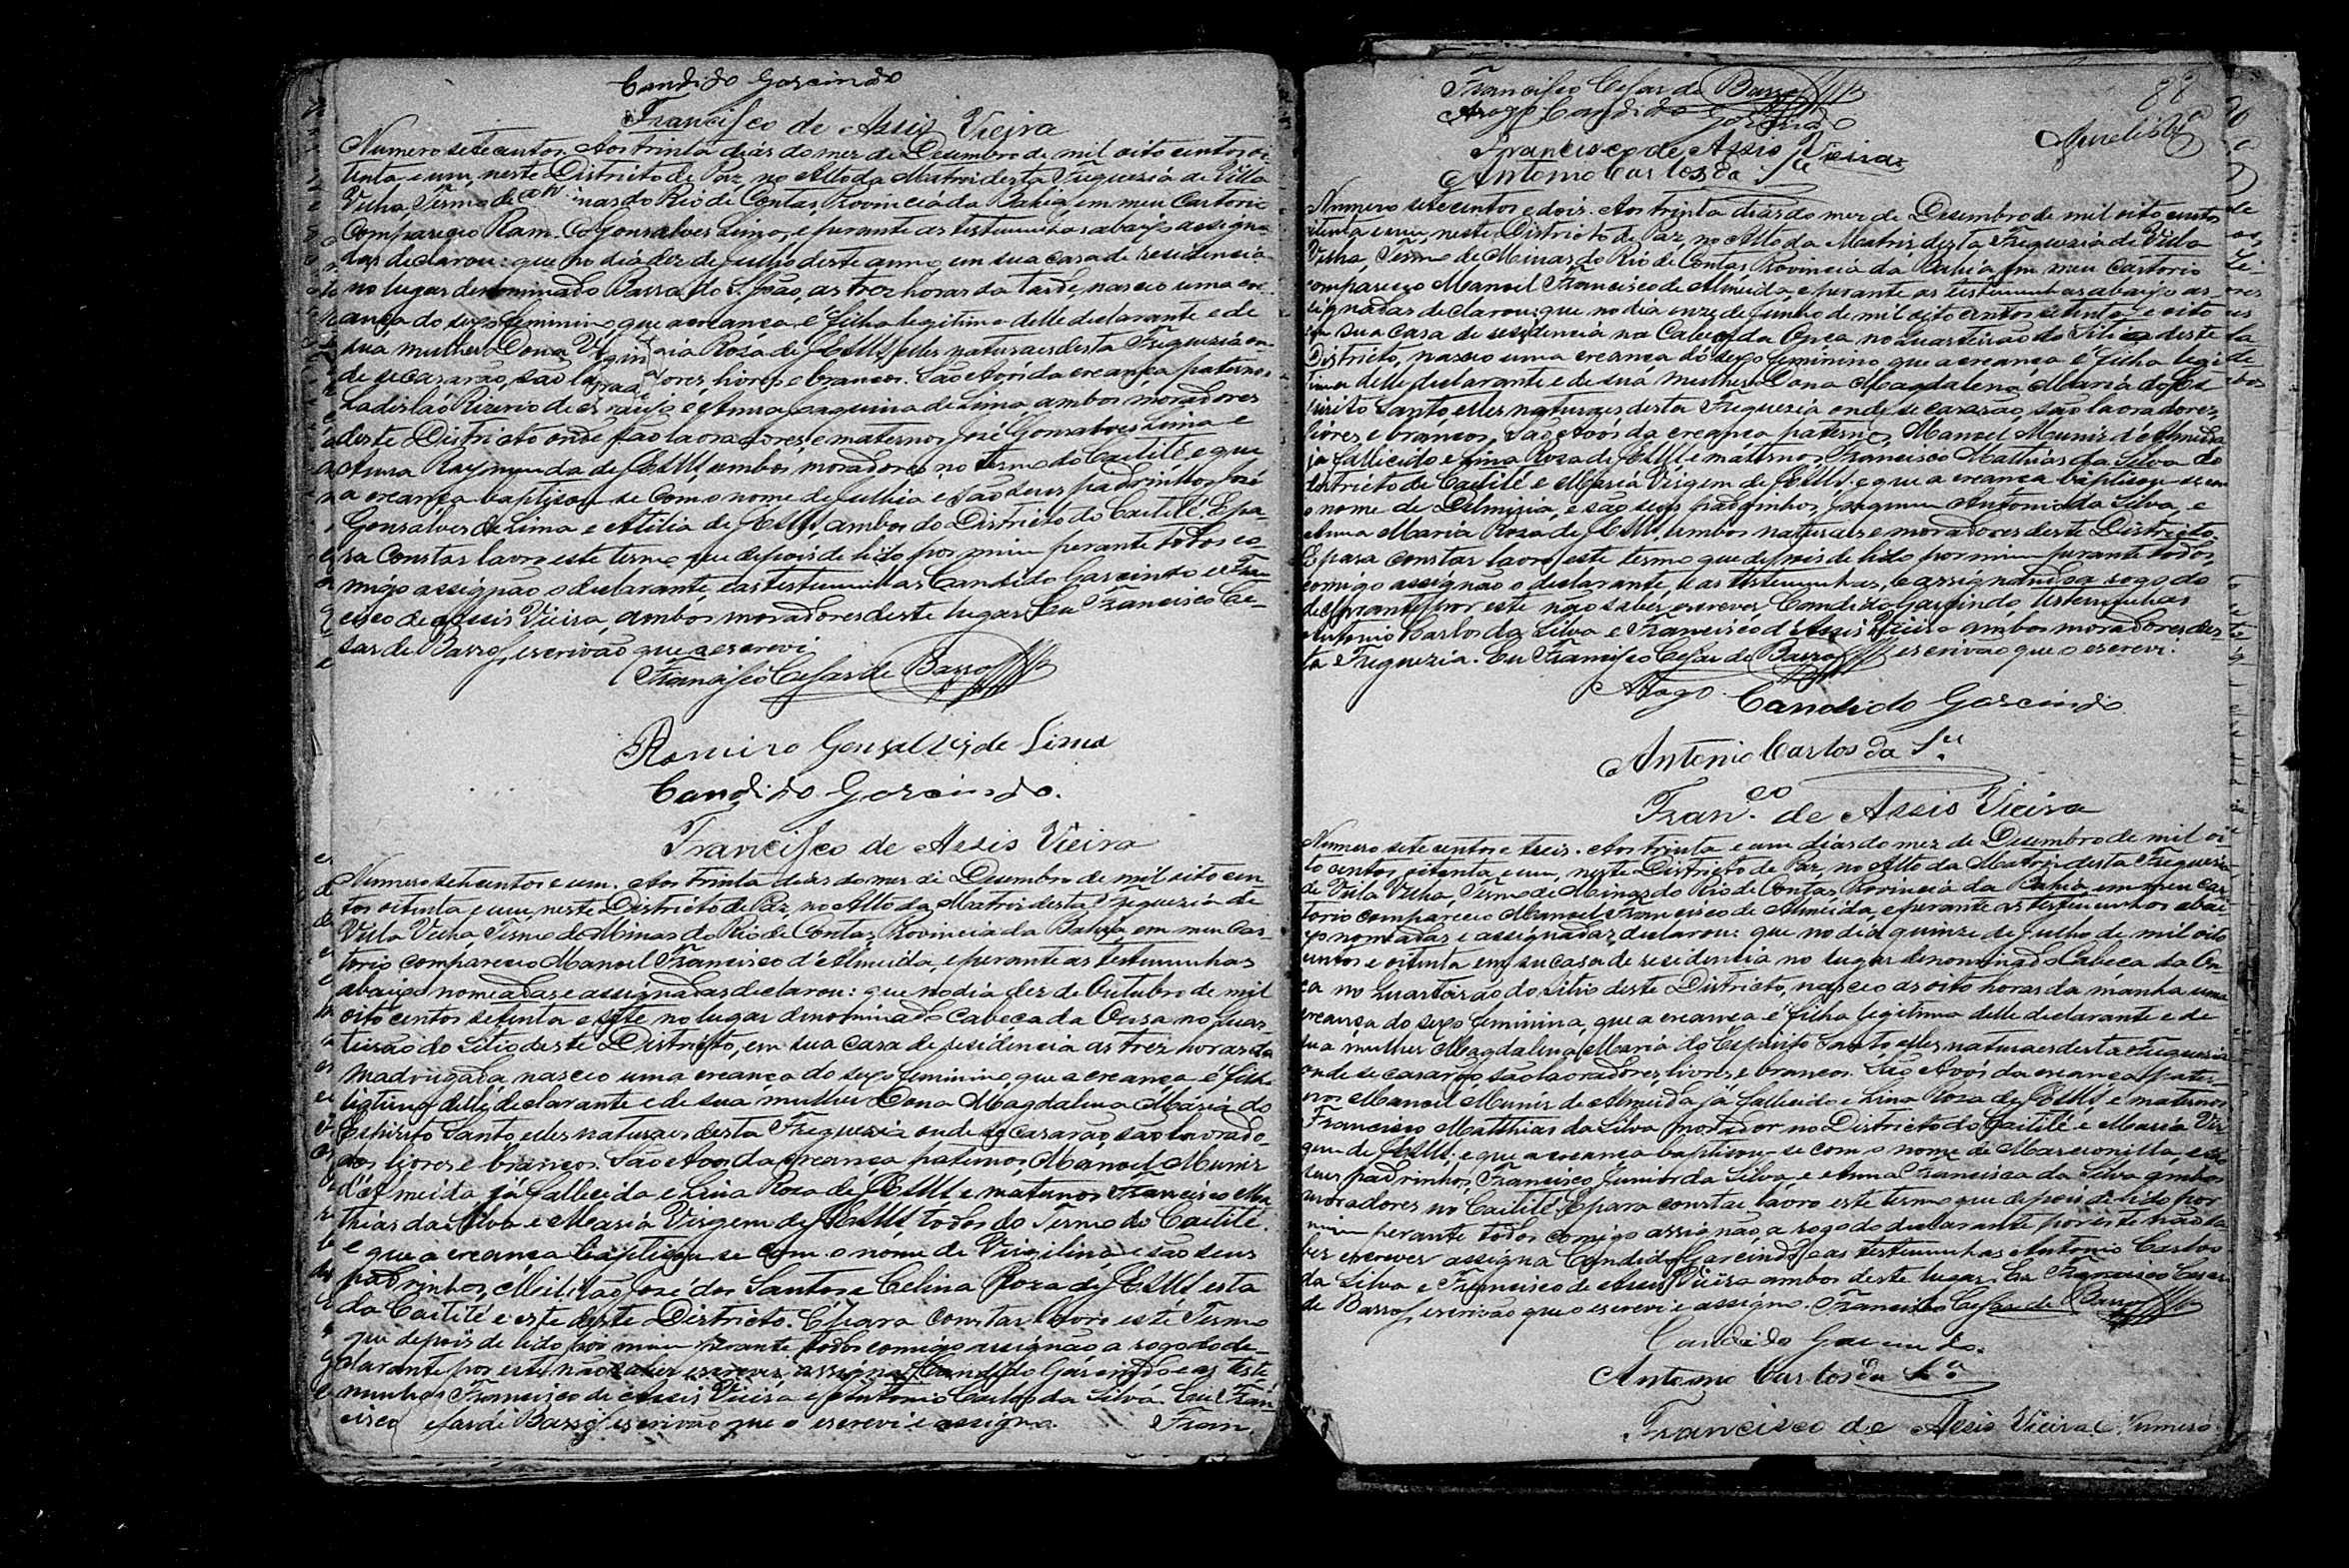 Candido Garcindo
Francisco de Assis Vieira
Numero setecentos. Aos trinta dias do mez de Desembro de mil oito centos oi-
tenta e um, neste Districto de Paz, no Alto da Matriz desta Freguezia de Villa
Velha, Termo de Minas do Rio de Contas, Provincia da Bahia, em meu Cartorio
Compareceo Gonsalves Lima, e perante as testemunhas abaixo assigna-
das declarou: que no dia dez de Julho deste anno em sua casa de residencia
no lugar denominado Barra do S. João, as trez horas da tarde, nasceo uma cre-
ança do sexo feminino que a creança é filha legitima delle declarante e de
sua mulher Dona Rosa de JESUS, elles naturaes desta Freguezia on-
de se casarão, são lavradores, livres e brancos. São Avós da creança paternos
Ladisláo Rizerio de Araujo e Anna Joaquina de Lima ambos moradores
deste Districto onde são lavradores, e maternos José Gonsalves Lima e
Anna Raymunda de JESUS, ambos moradores no termo do Caitité e que
a creança baptisou se com o nome de Julhia e são seus padrinhos José
Gonsalves de Lima e Atilia de JESUS, ambos do Districto do Caitité. E pa-
ra constar lavro este termo que depois de lido por mim perante todos co-
migo assignão o declarante, e as testemunhas Candido Garcindo e Fran-
cisco de Assis Vieira, ambos moradores deste lugar. Eu Francisco Ce-
sar de Barros, escrivão que o escrevi
Francisco Cesar de Barros
Ramiro Gonsalves de Lima
Candido Garcindo.
Francisco de Assis Vieira
Numero setecentos e um. Aos trinta dias do mez de Desembro de mil oito cen-
tos oitenta e um, neste Districto de Paz, no Alto da Matriz desta Freguezia de
Villa Velha, Termo de Minas do Rio de Contas, Provincia da Bahia, em meu Car-
torio compareceo Manoel Francisco d'Almeida, e perante as testemunhas
abaixo nomeadas e assignadas declarou: que no dia dez de Outubro de mil
oito centos setenta e sete no lugar denominado Cabeça da Onsa no Quar-
teirão do Sitio deste Districto, em sua casa de residencia as trez horas da
madrugada, nasceo uma creança do sexo feminino, que a creança é filha
legitima delle declarante e de sua mulher Dona Magdalena Maria do
Espirito Santo, elles naturaes desta Freguezia onde se casarão, são lavrado-
res livres e brancos. São Avós da creança paternos, Manoel Muniz
d'Almeida, já fallecido e Lina Roza de JESUS e maternos Francisco Ma-
thias da Silva e Maria Virgem de JESUS, todos do Termo do Caitité.
e que a creança baptisou se com o nome de Virgilina e são seus
padrinhos, Militão José dos Santos e Celina Roza de JESUS esta
do Caitité e este deste Districto. E para constar lavro este Termo
que depois de lido por mim perante todos comigo assignão a rogo do de-
clarante por este não saber escrever assigna Candido Garcindo e as teste-
munhas Francisco de Assis Vieira e Antonio Carlos da Silva. Eu Fran-
cisco Cesar de Barros, escrivão que o escrevi e assigno. Fran.
Francisco Cesar de Barros
Arogo Candido Garcindo
Francisco de Assis Vieira
Antonio Carlos da Sa
88
Numero setecentos e dois. Aos trinta dias do mez de Desembro de mil oito centos
oitenta e um, neste Districto de Paz, no Alto da Matriz desta Freguezia de Villa
Velha, Termo de Minas do Rio de Contas, Provincia da Bahia em meu Cartorio
compareceo Manoel Francisco de Almeida, e perante as testemunhas abaixo as-
signadas declarou: que no dia onze de Junho de mil oito centos setenta e oito
em sua casa de residencia na Cabeça da Onça no Quarteirão do Sitio deste
Districto, nasceo uma creança do sexo feminino que a creança é filha legi-
tima delle declarante e de sua mulher Dona Magdalena Maria do Es-
pirito Santo, elles naturaes desta Freguezia onde se casarão, são lavradores,
livres, e brancos. São Avós da creança paternos, Manoel Muniz d'Almeida
já fallecido e Lina Roza de JESUS e maternos, Francisco Mathias da Silva do
Districto de Caitité e Maria Virgem de JESUS, e que a creança baptisou-se com
o nome de Delmiria, e são seus padrinhos, Joaquim Antonio da Silva, e
Anna Maria Roza de JESUS, ambos naturaes e moradores deste Districto.
E para constar lavro este termo que depois de lido por mim perante todos,
comigo assignão o declarante, e as testemunhas, e assignando a rogo do
declarante por este não saber escrever Candido Garcindo, testemunhas
Antonio Carlos da Silva e Francisco d'Assis Vieira ambos moradores des-
ta Freguezia. Eu Francisco Cesar de Barros escrivão que o escrevi.
Arogo Candido Garcindo
Antonio Carlos da Sa
Franco de Assis Vieira
Numero sete centos e treis. Aos trinta e um dias do mez de Desembro de mil oi-
to centos oitenta e um, neste Districto de Paz, no Alto da Matriz desta Freguezia
de Villa Velha, Termo de Minas do Rio de Contas, Provincia da Bahia, em meu Car-
torio compareceo Manoel Francisco de Almeida, e perante as testemunhas abai-
xo nomeadas e assignadas, declarou: que no dia quinze de Julho de mil oito
centos e oitenta em su casa de residencia no lugar denominado Cabeça da On-
ca no Quarteirão do Sitio deste Districto, nasceo as oito horas da manha uma
creança do sexo feminina, que a creança é filha legitima delle declarante e de
sua mulher Magdalena Maria do Espirito Santo, elles naturaes desta Freguezia
onde se casarão são lavradores, livres, e brancos. São Avós da creança pater-
nos Manoel Muniz de Almeida já fallecido e Lina Roza de JESUS e maternos
Francisco Matthias da Silva morador no Districto do Caitité e Maria Vir-
gem de JESUS; e que a creança baptisou-se com o nome de Marcionilla, e são
seus padrinhos, Francisco Junior da Silva e Anna Francisca da Silva ambos
moradores no Caitité. E para constar lavro este termo que depois de lido por
mim perante todos comigo assignão, a rogo do declarante por este não sa-
ber escrever assigna Candido Garcindo e as testemunhas Antonio Carlos
da Silva e Francisco de Assis Vieira ambos deste lugar. Eu Francisco Cesar
de Barros, escrivão que o escrevi e assigno. Francisco Cesar de Barros
Candido Garcindo.
Antonio Carlos da Sa
Francisco de Assis Vieira. Numero